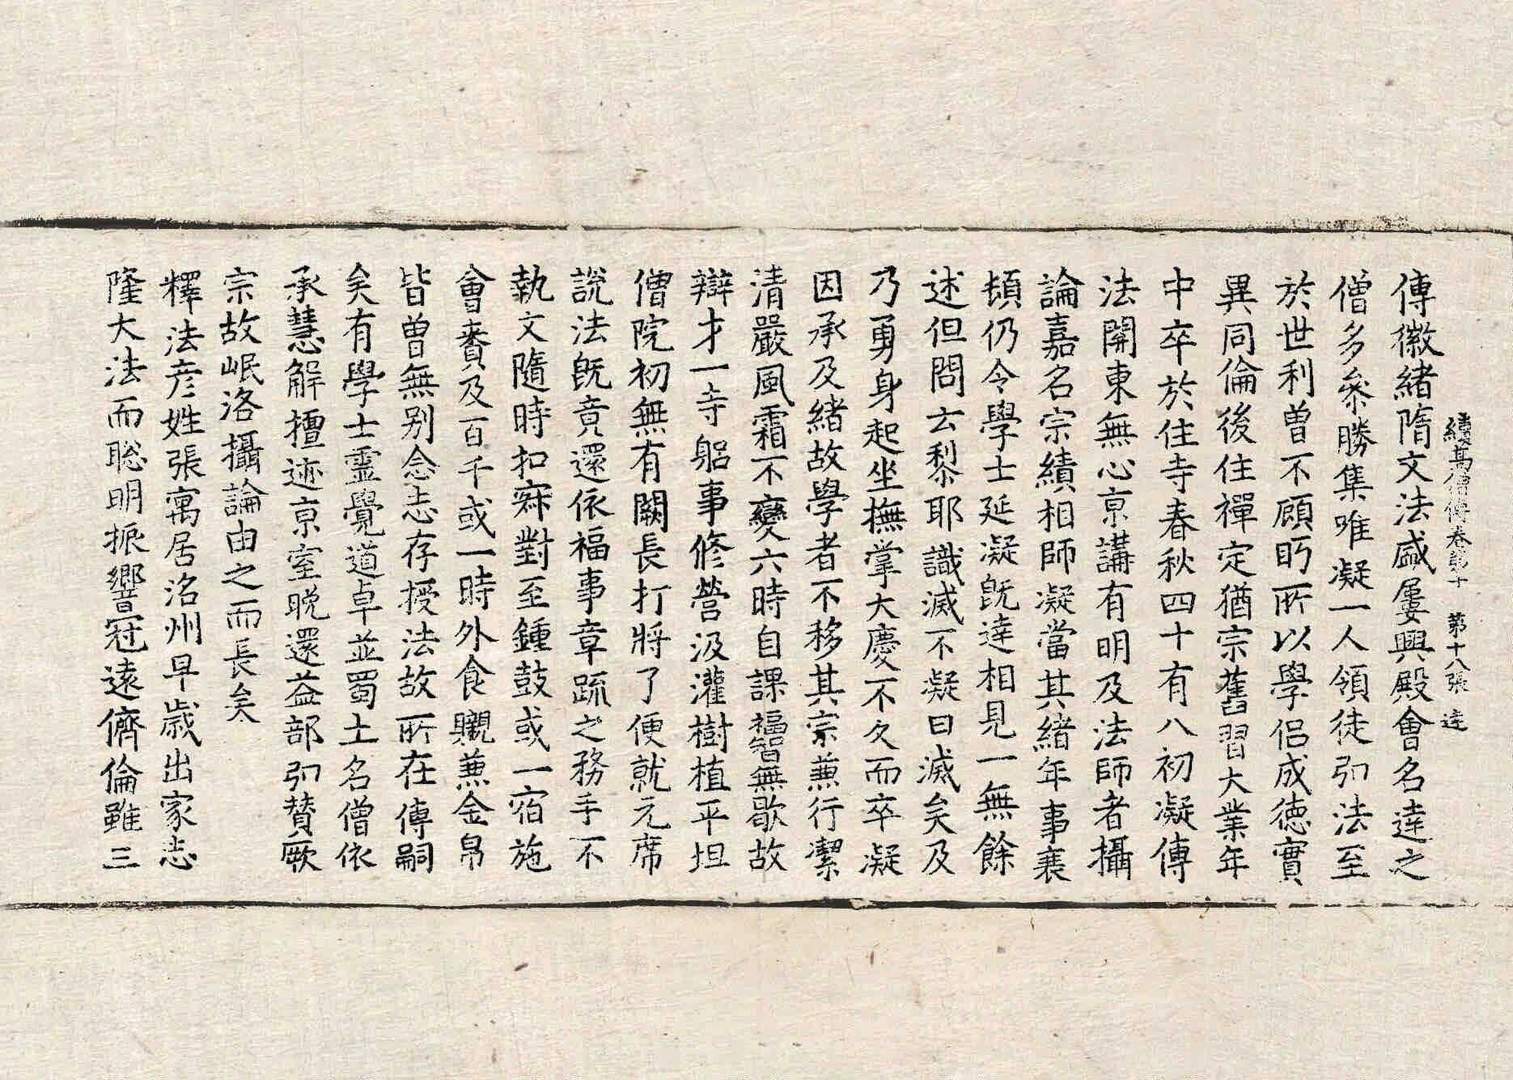 續高僧傳卷第十　第十八張　達
傳徽緒隋文法盛屢興殿會名達之
僧多參勝集唯凝一人領徒引法至
於世利曾不顧眄所以學侶成德實
異同倫後住禪定猶宗舊習大業年
中卒於住寺春秋四十有八初凝傳
法開東無心京講有明及法師者攝
論嘉名宗績相師凝當其緒年事衰
頓仍令學士延凝既達相見一無餘
述但問云黎耶識滅不凝曰滅矣及
乃勇身起坐撫掌大慶不久而卒凝
因承及緒故學者不移其宗兼行潔
清嚴風霜不變六時自課福智無歇故
辯才一寺躬事修營汲灌樹植平坦
僧院初無有闕長打將了便就元席
說法既竟還依福事章疏之務手不
執文隨時扣寐對至鍾鼓或一宿施
會賚及百千或一時外食䞋兼金帛
皆曾無別念志存授法故所在傳嗣
矣有學士靈覺道卓並蜀土名僧依
承慧解擅迹京室晚還益部弘贊厥
宗故岷洛攝論由之而長矣
釋法彥姓張寓居洺州早歲出家志
隆大法而聰明振響冠遠儕倫雖三